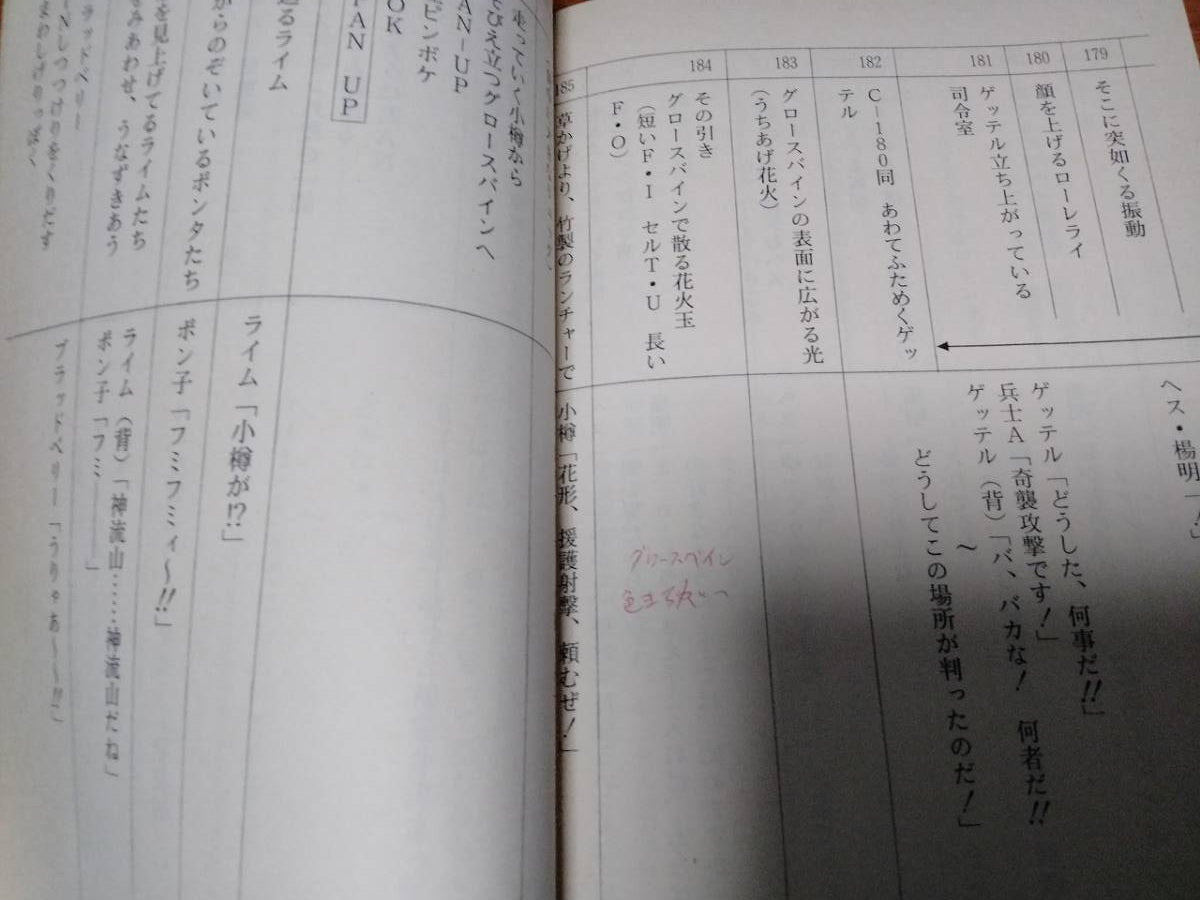 179
そこに突如くる振動
180
顔を上げるローレライ
181
ゲッテル立ち上がっている
司令室
182
C－180同　あわてふためくゲッ
テル
183
グロースバインの表面に広がる光
（うちあげ花火）
184
その引き
グロースバインで散る花火玉
（短いF・I　セルT・U　長い
F・O）
185
草かげより、竹製のランチャーで
ヘス・楊明「！」
ゲッテル「どうした、何事だ!!」
兵士A「奇襲攻撃です！」
ゲッテル（背）「バ、バカな！　何者だ!!
～
どうしてこの場所が判ったのだ！」
グロースバイン
小樽「花形、援護射撃、頼むぜ！」
走っていく小樽から
そびえ立つグロースバインへ
PAN－UP
ピンボケ
OK
PAN UP
るライム
からのぞいているポンタたち
を見上げてるライムたち
みあわせ、うなずきあう
ラッドベリー
ライム「小樽が!?」
ポン子「フミフミィ～!!」
ライム（背）「神流山……神流山だね」
ポン子「フミ――――」
ブラッドベリー「うりゃあ～～!!」